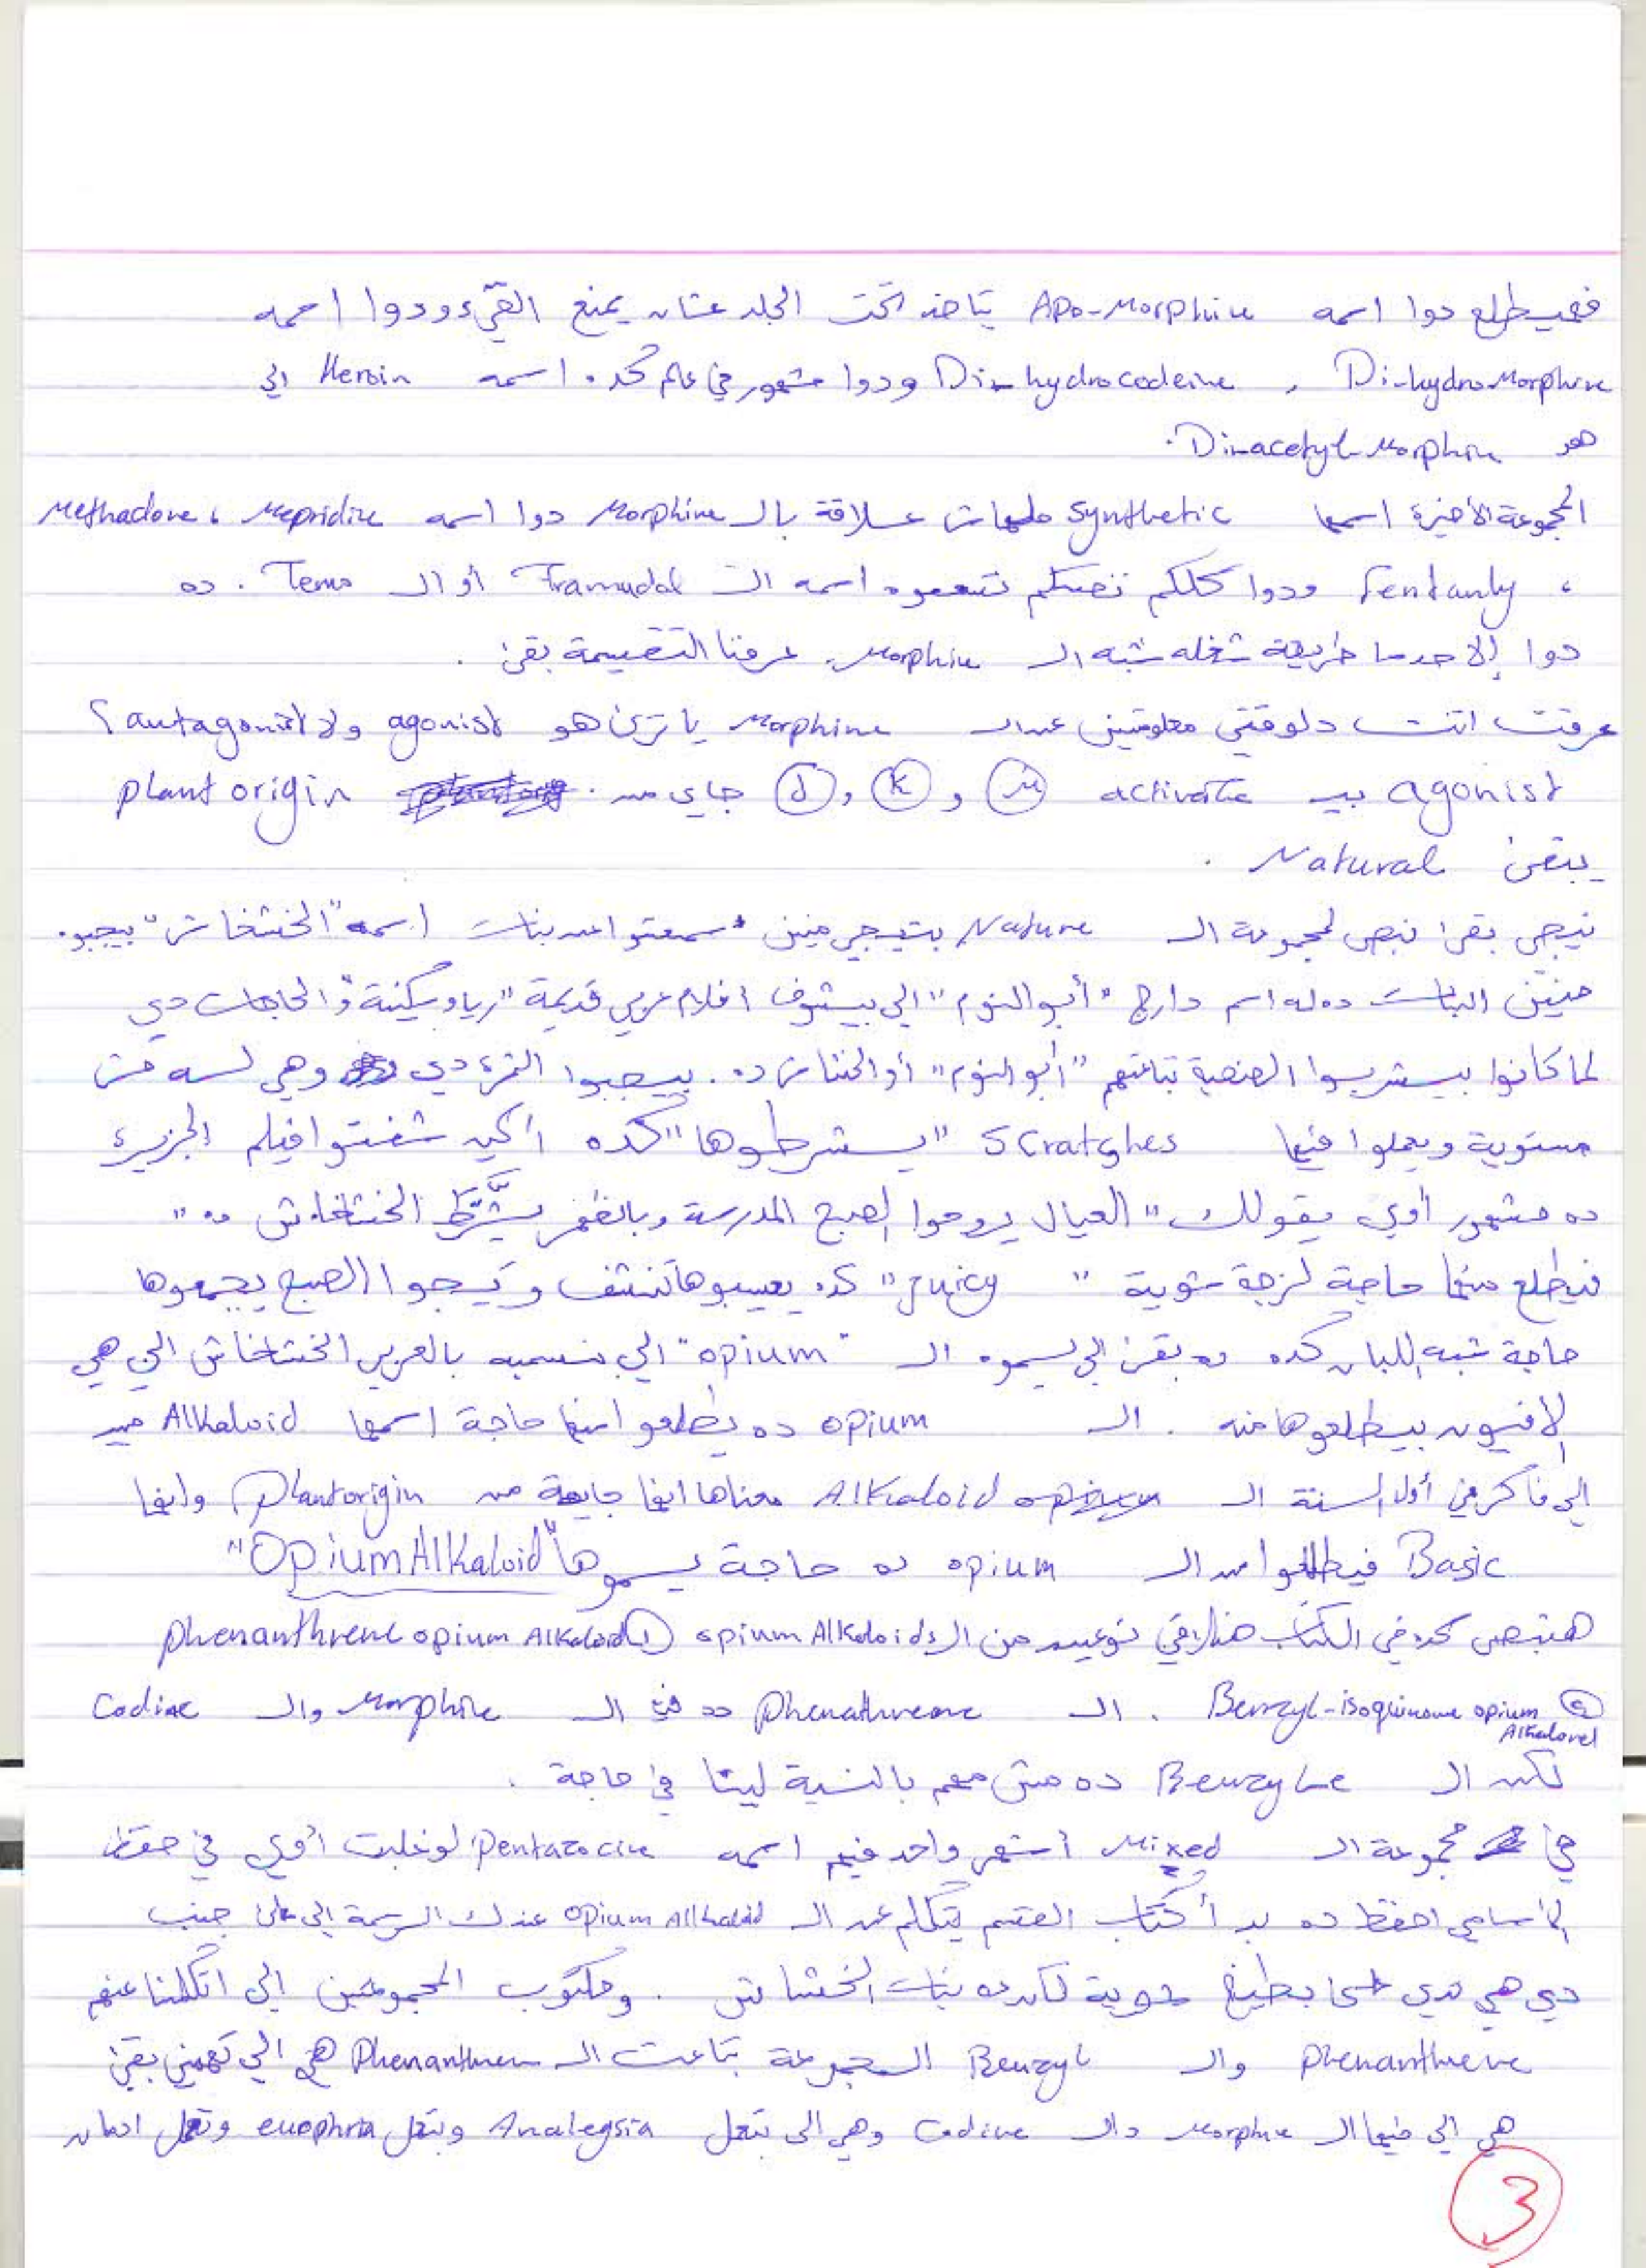 فهيطلع دوا اسمه Apo-Morphine بتاخد تحت الجلد عشان يمنع القيء ودوا اسمه
Di-hydroMorphine , Di-hydrocodeine ودوا مشهور في عالم كده اسمه Heroin الي
هو Di-acetyl-Morphin.
المجموعة الأخيرة اسمها Synthetic ملهاش علاقة بالـ Morphine دوا اسمه Mepridine ، Methadone
، Fentanly ودوا كلكم نفسكم تسمعوه اسمه الـ Tramadol أو الـ Temo . ده
دوا إلا حد ما طريقة شغله شبه الـ Morphine. عرفنا التقسيمة بقى .
عرفت انت دلوقتي معلومتين عن الـ Morphine يا ترى هو agonist ولا antagonist ؟
agonist بيـ activate μ و K و δ جاي من plant origin
يبقى Natural .
نيجي بقى نبص لمجموعة الـ Nature بتيجي منين سمعتوا عن نبات اسمه "الخشخاش" بيجبوه
منين النبات ده له اسم دارج "أبو النوم" الي بيشوف افلام عربي قديمة "ريا وسكينة" والحاجات دي
لما كانوا بيشربوا الضحية بتاعتهم "أبو النوم" أو الخشاش ده . بيجيبوا الثمرة دي وهي لسه مش
مستوية ويعملوا فيها Scratches "يشرطوها" كده اكيد شفتوا فيلم الجزيرة
ده مشهور أوي يقولك "العيال يروحوا الصبح المدرسة وبالظهر يشَّرط الخشخاش ده"
فيطلع منها حاجة لزجة شوية "Juicy" كده يسيبوها تنشف ويجوا الصبح يجمعوها
حاجة شبه اللبان كده ده بقى الي بيسموه الـ "opium" الي بنسميه بالعربي الخشخاش الي هي
الافيون بيطلعوها منه . الـ opium ده يطلعوا منها حاجة اسمها Alkaloid مين
الي فاكر في أول السنة الـ Alkaloid معناها انها جاية من Plant origin وانها
Basic فيطلعوا من الـ opium ده حاجة يسموها "Opium Alkaloid"
هنبص كده في الكتاب هنلاقي نوعين من الـ opium Alkaloids ① phenanthrene opium Alkaloid
② Benzyl-isoquinone opium Alkaloid . الـ Phenathrene ده في الـ Morphine والـ Codine
لكن الـ Benzyle ده مش مهم بالنسبة لينا في حاجة .
في مجموعة الـ Mixed أشهر واحد فيهم اسمه Pentazocine لو غلبت أوي في حفظ
الأسامي احفظ ده بدأ كتاب القسم يتكلم عن الـ opium Alkaloid عندك الرسمة الي على جنب
دي هي شوية كده نبات الخشاش . ومكتوب المجموعتين الي اتكلمنا عنهم
phenanthrene والـ Benzyl المجموعة بتاعت الـ Phenanthrene هي الي تهمني بقى
هي الي فيها الـ Morphine والـ Codine وهي الي بتعمل Analegsia وبتعمل euophria وتعمل ادمان
3